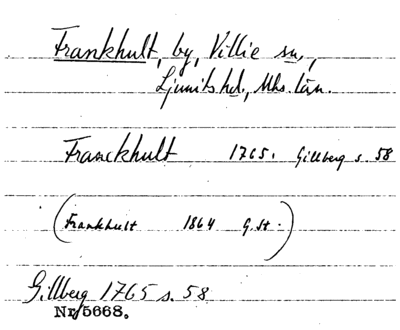 Frankhult, by, Villie sn,
Ljunits hd., Mhs. län.
Franckhult 1765. Gillberg s. 58
(Frankhult 1864 G.St.)
Gillberg 1765 s. 58
Nr/5668.